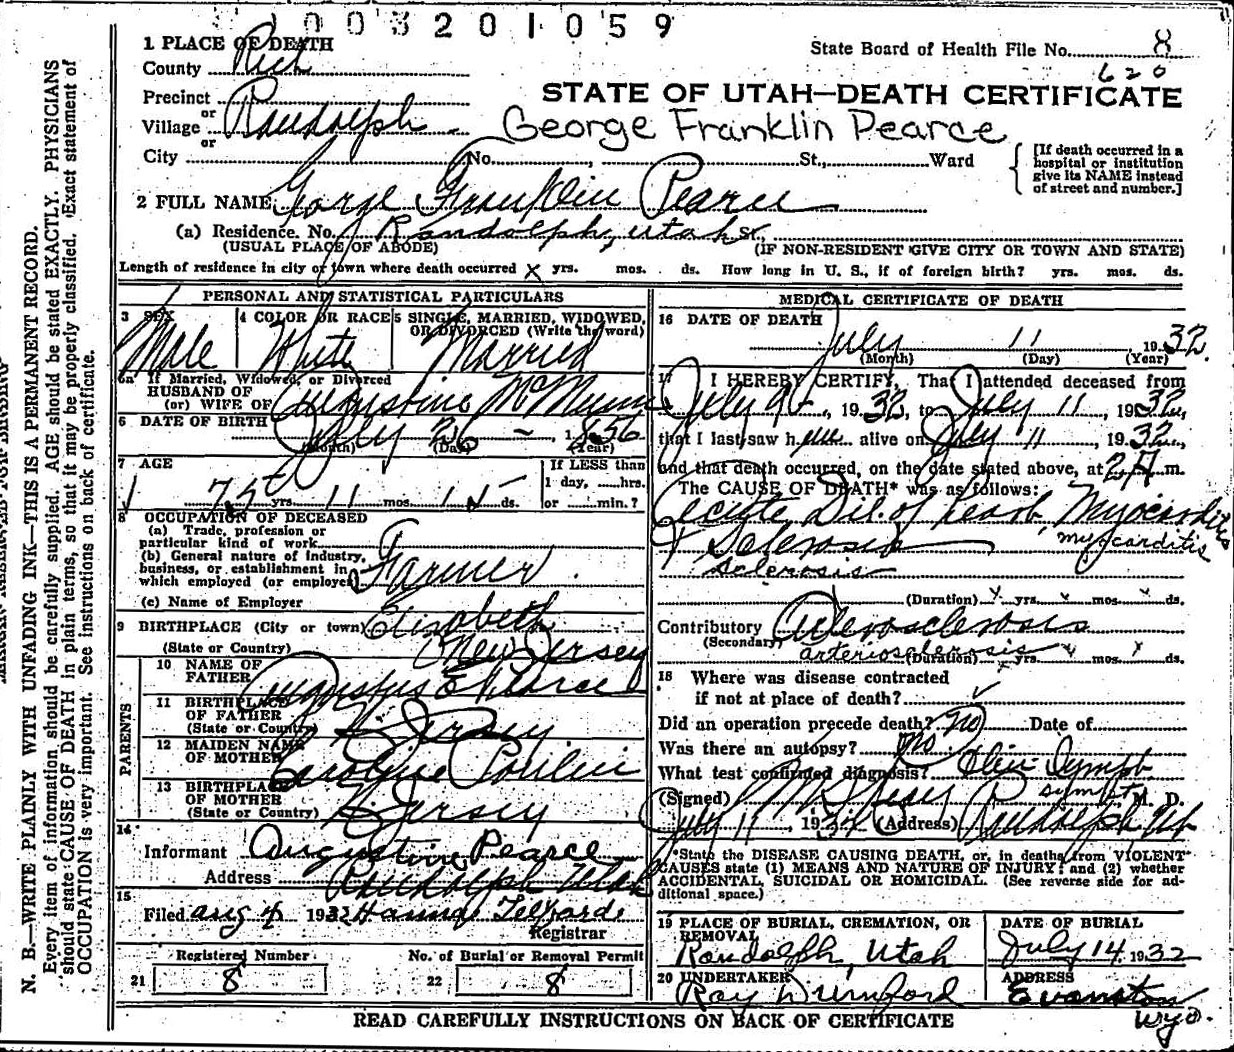 1003201059
1 PLACE OF DEATH
State Board of Health File No. 8
County Rich
620
Precinct
or
Village Randolph
or
STATE OF UTAH—DEATH CERTIFICATE
George Franklin Pearce
City No. , St., Ward
[If death occurred in a hospital or institution give its NAME instead of street and number.]
2 FULL NAME George Franklin Pearce
(a) Residence. No. Randolph, Utah St.,
(USUAL PLACE OF ABODE) (IF NON-RESIDENT GIVE CITY OR TOWN AND STATE)
Length of residence in city or town where death occurred x yrs. mos. ds. How long in U. S., if of foreign birth? yrs. mos. ds.
PERSONAL AND STATISTICAL PARTICULARS
3 SEX
Male
4 COLOR OR RACE
White
5 SINGLE, MARRIED, WIDOWED,
OR DIVORCED (Write the word)
Married
6a If Married, Widowed, or Divorced
HUSBAND OF
(or) WIFE OF Augustine
6 DATE OF BIRTH
July 26 - 1856
(Month) (Day) (Year)
7 AGE
75 yrs. 11 mos. 15 ds.
If LESS than
1 day, hrs.
or min.?
8 OCCUPATION OF DECEASED
(a) Trade, profession or
particular kind of work
(b) General nature of industry,
business, or establishment in
which employed (or employer) Farmer
(c) Name of Employer
9 BIRTHPLACE (City or town) Elizabeth
(State or Country) New Jersey
PARENTS
10 NAME OF
FATHER Augustus E Pearce
11 BIRTHPLACE
OF FATHER
(State or Country) Jersey
12 MAIDEN NAME
OF MOTHER Caroline
13 BIRTHPLACE
OF MOTHER
(State or Country) Jersey
14
Informant Augustine Pearce
Address Randolph Utah
15
Filed Aug 4 1932
Registrar
Registered Number
21 8
No. of Burial or Removal Permit
22 8
MEDICAL CERTIFICATE OF DEATH
16 DATE OF DEATH
July 11, 1932.
(Month) (Day) (Year)
17 I HEREBY CERTIFY, That I attended deceased from
July 9, 1932, to July 11, 1932,
that I last saw him alive on July 11, 1932,
and that death occurred, on the date stated above, at 2 A m.
The CAUSE OF DEATH* was as follows:
Acute Dil. of heart, Myocarditis
myocarditis
& Sclerosis
sclerosis
(Duration) x yrs. x mos. x ds.
Contributory Arteriosclerosis
(Secondary) arteriosclerosis
(Duration) x yrs. x mos. x ds.
18 Where was disease contracted
if not at place of death?
Did an operation precede death? No Date of
Was there an autopsy? No
What test confirmed diagnosis? Clin Sympt.
sympt
(Signed) M. D.
July 11, 1932 (Address) Randolph Ut
*State the DISEASE CAUSING DEATH, or, in deaths from VIOLENT
CAUSES state (1) MEANS AND NATURE OF INJURY; and (2) whether
ACCIDENTAL, SUICIDAL OR HOMICIDAL. (See reverse side for ad-
ditional space.)
19 PLACE OF BURIAL, CREMATION, OR
REMOVAL
Randolph, Utah
DATE OF BURIAL
July 14 1932
20 UNDERTAKER
Roy
ADDRESS
Evanston
Wyo.
READ CAREFULLY INSTRUCTIONS ON BACK OF CERTIFICATE
N. B.—WRITE PLAINLY WITH UNFADING INK—THIS IS A PERMANENT RECORD.
Every item of information should be carefully supplied. AGE should be stated EXACTLY. PHYSICIANS
should state CAUSE OF DEATH in plain terms, so that it may be properly classified. Exact statement of
OCCUPATION is very important. See instructions on back of certificate.